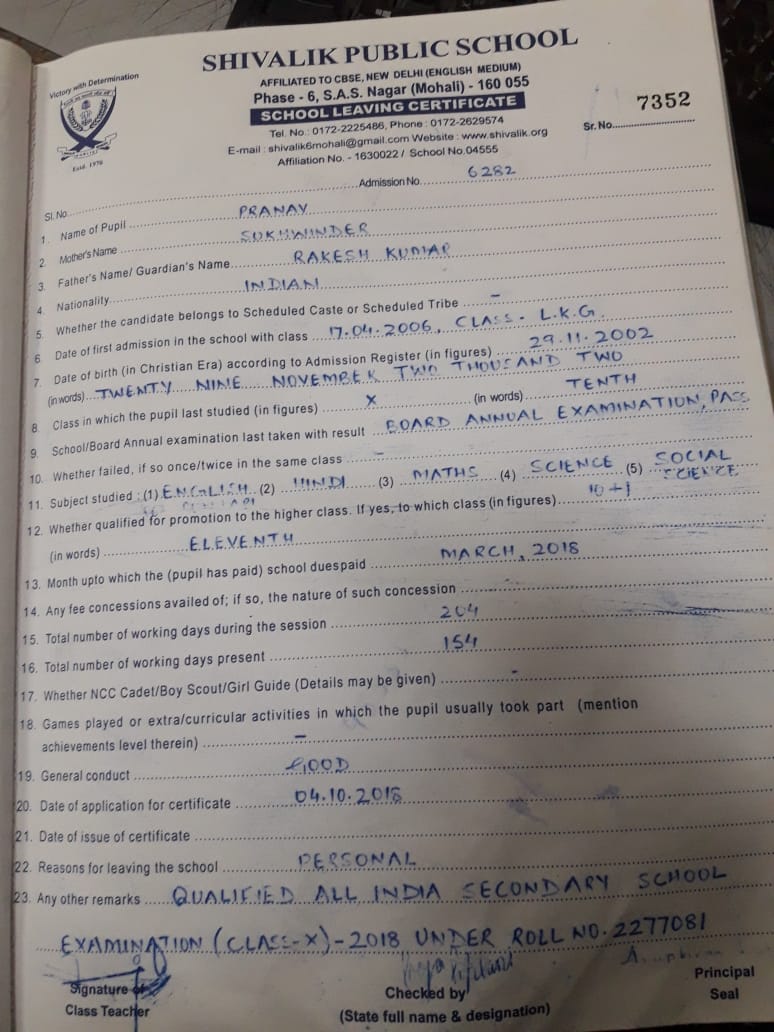 SHIVALIK PUBLIC SCHOOL
Victory with Determination
AFFILIATED TO CBSE, NEW DELHI (ENGLISH MEDIUM)
Phase - 6, S.A.S. Nagar (Mohali) - 160 055
SCHOOL LEAVING CERTIFICATE
Tel. No.: 0172-2225486, Phone : 0172-2629574
E-mail : shivalik6mohali@gmail.com Website : www.shivalik.org
Affiliation No. - 1630022 / School No.04555
Estd. 1976
Sr. No. 7352
Sl. No. Admission No. 6282
1. Name of Pupil PRANAV
2. Mother's Name SUKHWINDER
3. Father's Name/ Guardian's Name RAKESH KUMAR
4. Nationality INDIAN
5. Whether the candidate belongs to Scheduled Caste or Scheduled Tribe –
6. Date of first admission in the school with class 17.04.2006, CLASS- L.K.G.
7. Date of birth (in Christian Era) according to Admission Register (in figures) 29.11.2002
(in words) TWENTY NINE NOVEMBER TWO THOUSAND TWO
8. Class in which the pupil last studied (in figures) X (in words) TENTH
9. School/Board Annual examination last taken with result BOARD ANNUAL EXAMINATION, PASS
10. Whether failed, if so once/twice in the same class –
11. Subject studied : (1) ENGLISH (2) HINDI (3) MATHS (4) SCIENCE (5) SOCIAL SCIENCE
12. Whether qualified for promotion to the higher class. If yes, to which class (in figures) 10+1
(in words) ELEVENTH
13. Month upto which the (pupil has paid) school duespaid MARCH, 2018
14. Any fee concessions availed of; if so, the nature of such concession -
15. Total number of working days during the session 204
16. Total number of working days present 154
17. Whether NCC Cadet/Boy Scout/Girl Guide (Details may be given) -
18. Games played or extra/curricular activities in which the pupil usually took part (mention
achievements level therein) –
19. General conduct GOOD
20. Date of application for certificate 04.10.2018
21. Date of issue of certificate
22. Reasons for leaving the school PERSONAL
23. Any other remarks QUALIFIED ALL INDIA SECONDARY SCHOOL
EXAMINATION (CLASS-X)-2018 UNDER ROLL NO. 2277081
Signature of
Class Teacher
Checked by
(State full name & designation)
Principal
Seal